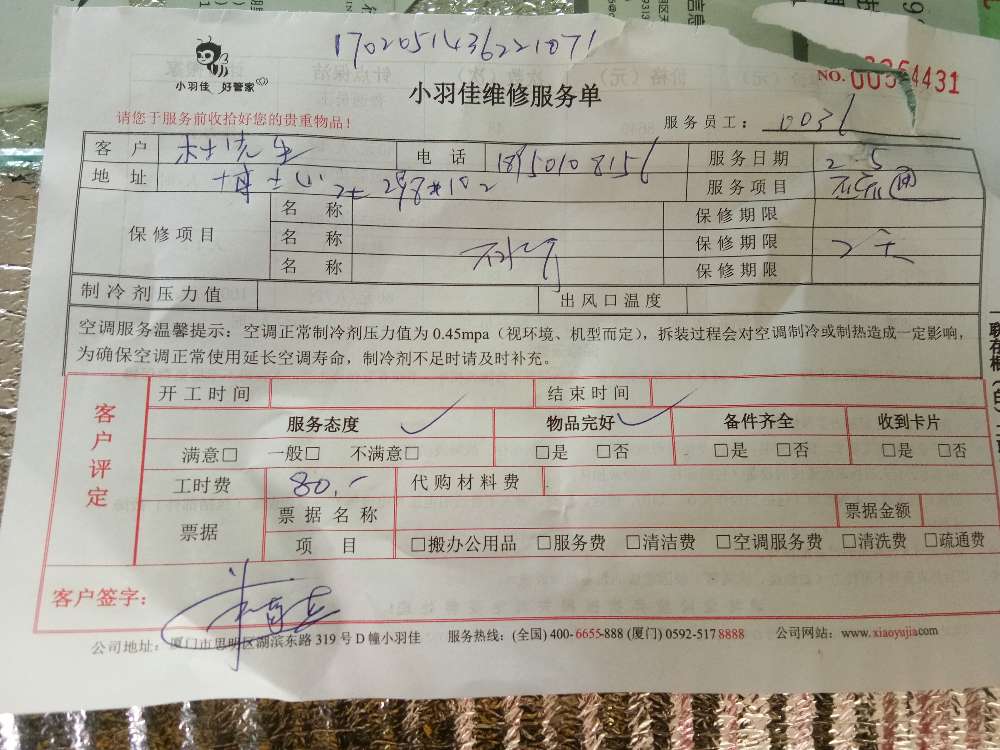 1702051436221071
小羽佳 好管家
小羽佳维修服务单
NO. 00354431
请您于服务前收拾好您的贵重物品!
服务员工: 0036
客 户 电 话 18950108156 服务日期 2.5
地 址 298#102 服务项目
保修项目 名 称 保修期限
名 称 保修期限
名 称 保修期限
制冷剂压力值 出风口温度
空调服务温馨提示:空调正常制冷剂压力值为0.45mpa(视环境、机型而定),拆装过程会对空调制冷或制热造成一定影响,
为确保空调正常使用延长空调寿命,制冷剂不足时请及时补充。
客户评定
开工时间 结束时间
服务态度 ✓ 物品完好 ✓ 备件齐全 收到卡片
满意□ 一般□ 不满意□ □是 □否 □是 □否 □是 □否
工时费 80.- 代购材料费
票据 票据名称 票据金额
项 目 □搬办公用品 □服务费 □清洁费 □空调服务费 □清洗费 □疏通费
客户签字:
公司地址:厦门市思明区湖滨东路319号D幢小羽佳 服务热线:(全国)400-6655-888 (厦门)0592-5178888 公司网站:www.xiaoyujia.com